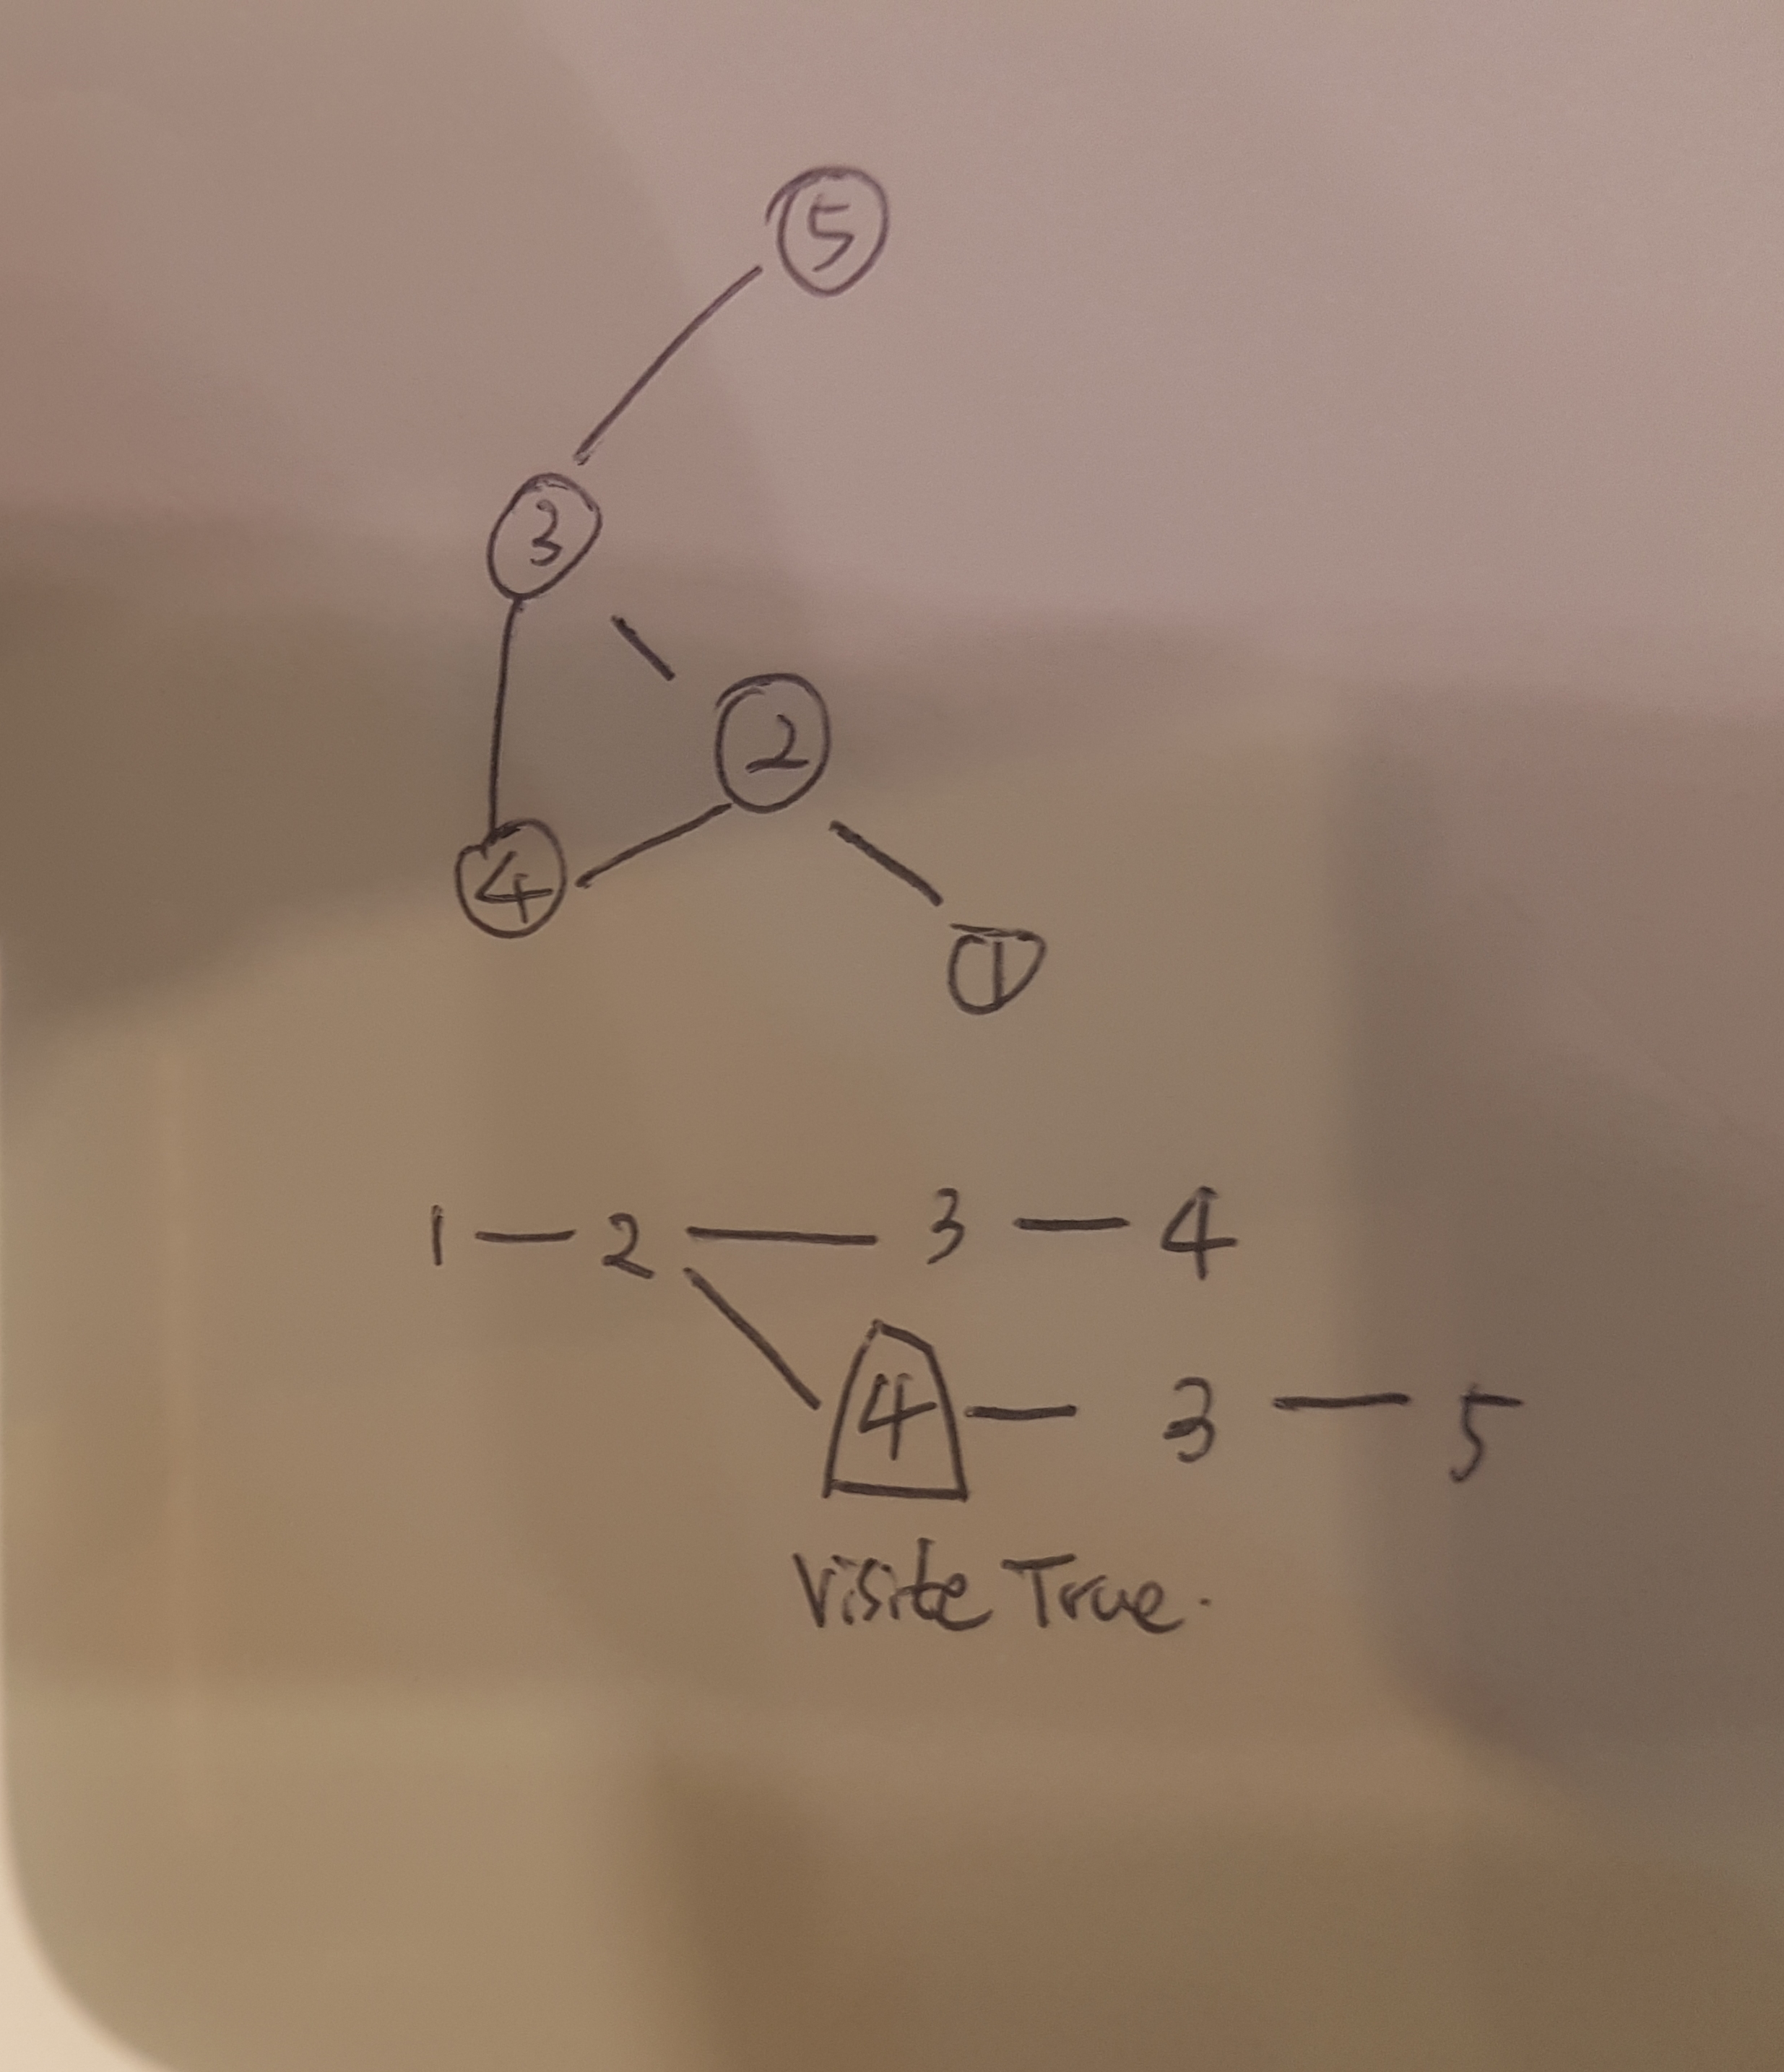 5
3
2
4
1
1 — 2 — 3 — 4
4 — 3 — 5
Visite True.